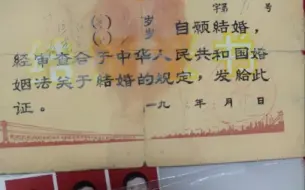 字第 号
岁 自願结婚，
岁
经审查合于中华人民共和国婚
姻法关于结婚的规定，发给此
证。 一九 年 月 日